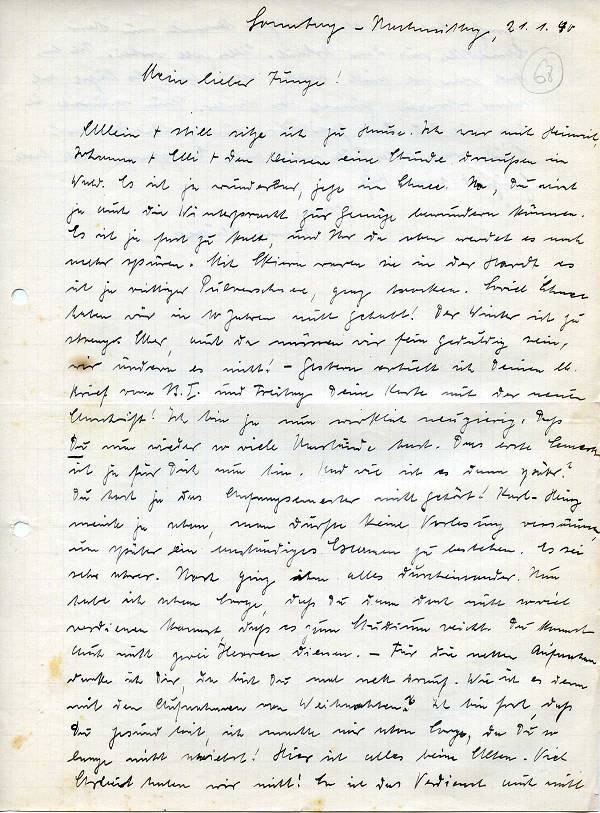 Sonntag - Nachmittag, 21.1.40
68
Mein lieber Junge!
Allein + still sitze ich zu Hause. Ich war mit Heinrich,
Johanna + Elli + den Kleinen eine Stunde draußen im
Wald. Es ist ja wunderbar, jetzt im Schnee. Na, Du wirst
ja auch die Winterpracht zur Genüge bewundern können.
Es ist ja fast zu kalt, und Ihr da oben werdet es noch
mehr spüren. Mit Skiern waren sie in der Hardt es
ist ja richtiger Pulverschnee, ganz trocken. Soviel Schnee
haben wir in 10 Jahren nicht gehabt! Der Winter ist zu
streng. Aber, auch da müssen wir fein geduldig sein,
wir ändern es nicht! - Gestern erhielt ich Deinen lb.
Brief vom I. und Freitag Deine Karte mit der neuen
Anschrift! Ich bin ja nun wirklich neugierig. Daß
Du nun wieder so viele Umstände hast. Das erste Semester
ist ja für Dich nun hin. Und wie ist es dann später?
Du hast ja das Anfangssemester nicht gehört! Karl-Heinz
meint ja eben, man dürfte keine Vorlesung versäumen,
um später ein anständiges Examen zu bestehen. Es sei
sehr schwer. Sonst ging ihm alles durcheinander. Nun
habe ich eben Sorge, daß Du dann dort nicht soviel
verdienen kannst, daß es zum Studium reicht. Du kannst
auch nicht zwei Herren dienen. - Für die netten Aufnahmen
danke ich Dir, da bist Du mal nett drauf. Wie ist es denn
mit den Aufnahmen von Weihnachten? Ich bin froh, daß
Du gesund bist, ich machte mir eben Sorge, da Du so
lange nicht schriebst! Hier ist alles beim Alten. Viel
Arbeit haben wir nicht! Es ist das Verdienst auch nicht